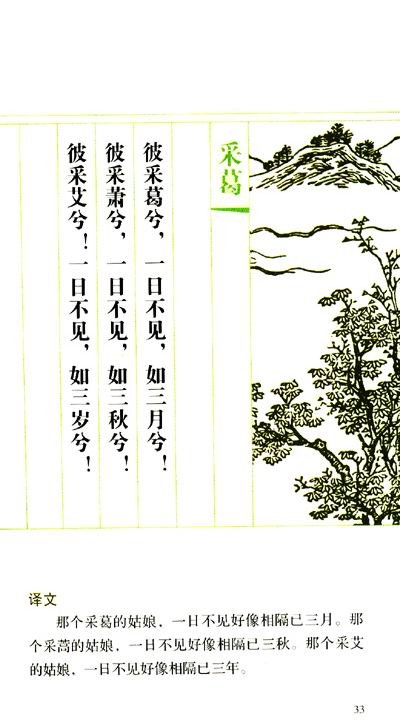 采葛
彼采葛兮，一日不见，如三月兮！
彼采萧兮，一日不见，如三秋兮！
彼采艾兮！一日不见，如三岁兮！
译文
那个采葛的姑娘，一日不见好像相隔已三月。那
个采蒿的姑娘，一日不见好像相隔已三秋。那个采艾
的姑娘，一日不见好像相隔已三年。
33